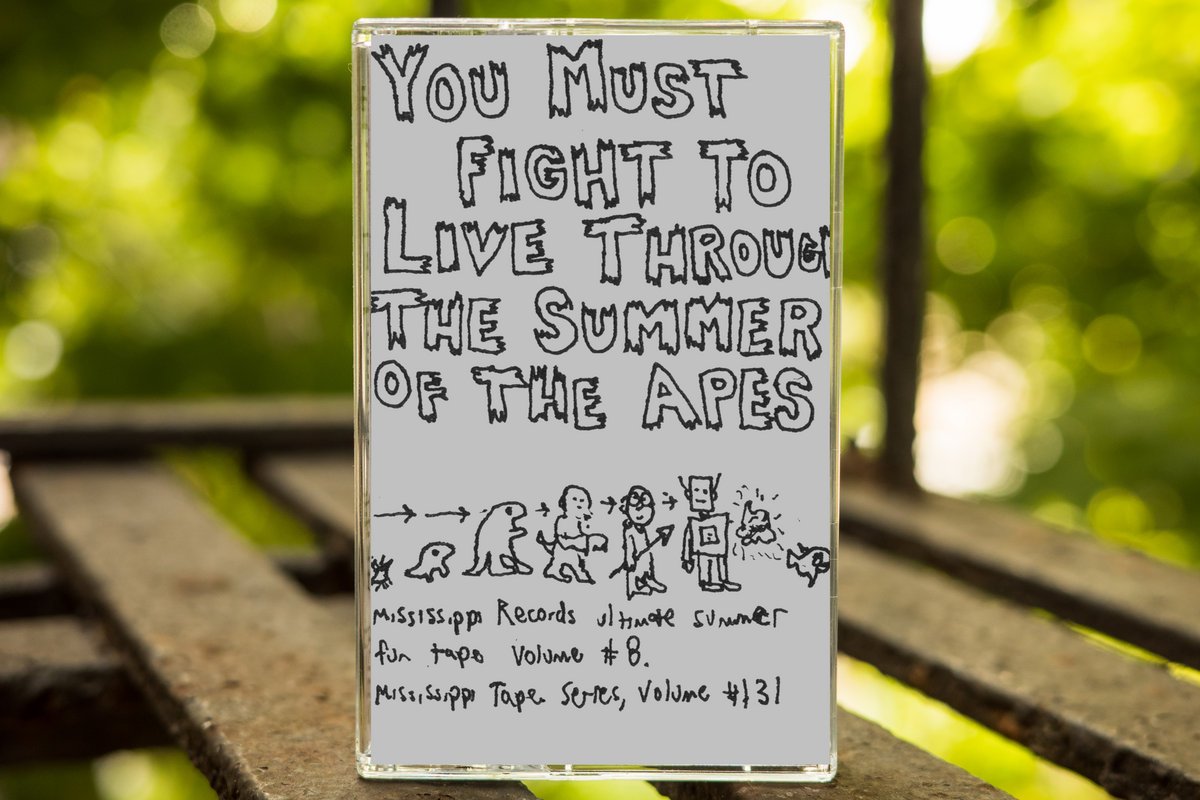 YOU MUST
FIGHT TO
LIVE THROUGH
THE SUMMER
OF THE APES
Mississippi Records ultimate summer
fun tape Volume #8.
Mississippi Tape Series, Volume #131